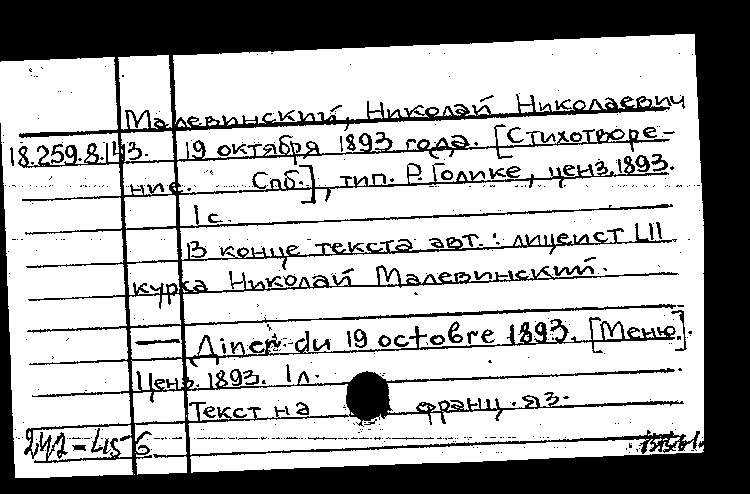 Малевинский, Николай Николаевич
18.259.8.143. 19 октября 1893 года. [Стихотворе-
ние. Спб.], тип. Р. Голике, ценз. 1893.
1 с.
В конце текста авт.: лицеист LII
курка Николай Малевинский.
— Диner du 19 octobre 1893. [Меню].
Ценз. 1893. 1 л.
Текст на франц. яз.